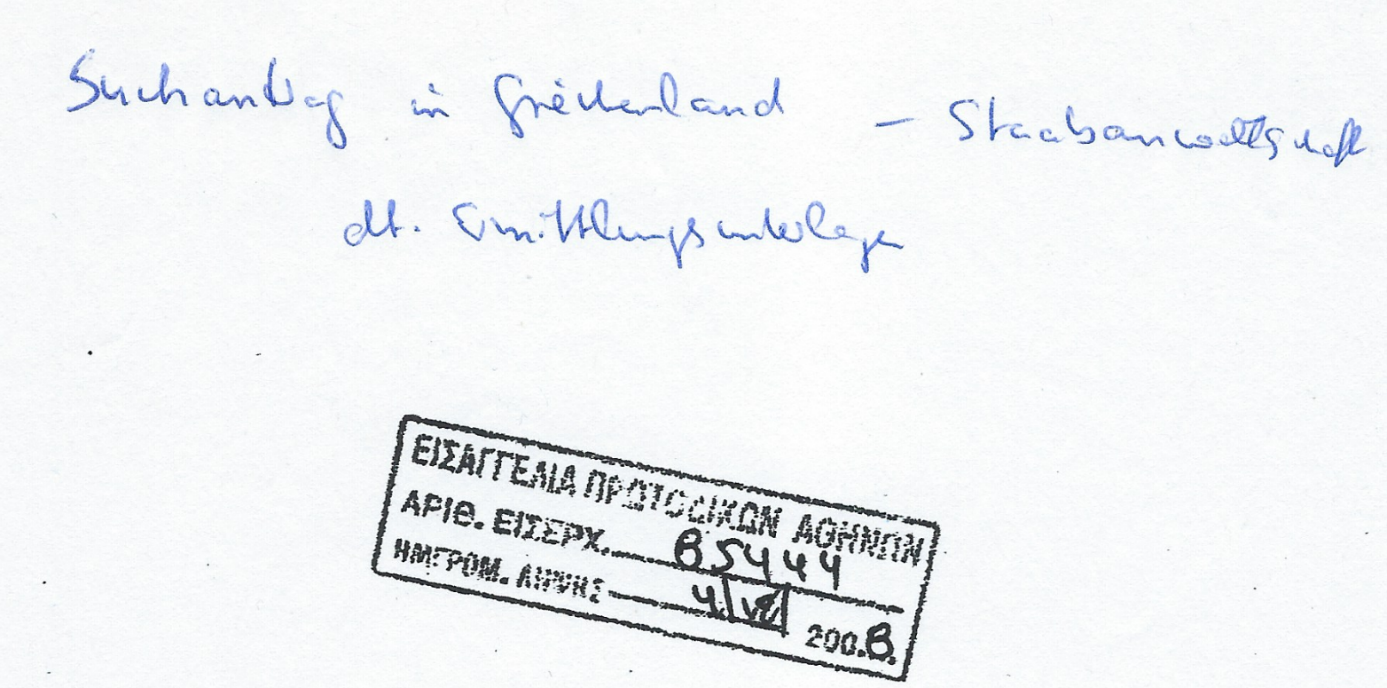 Suchantrag in Griechenland – Staatsanwaltschaft
dt. Ermittlungsunterlagen
ΕΙΣΑΓΓΕΛΙΑ ΠΡΩΤΟΔΙΚΩΝ ΑΘΗΝΩΝ
ΑΡΙΘ. ΕΙΣΕΡΧ. 85444
ΗΜΕΡΟΜ. ΛΗΨΗΣ 200.8.